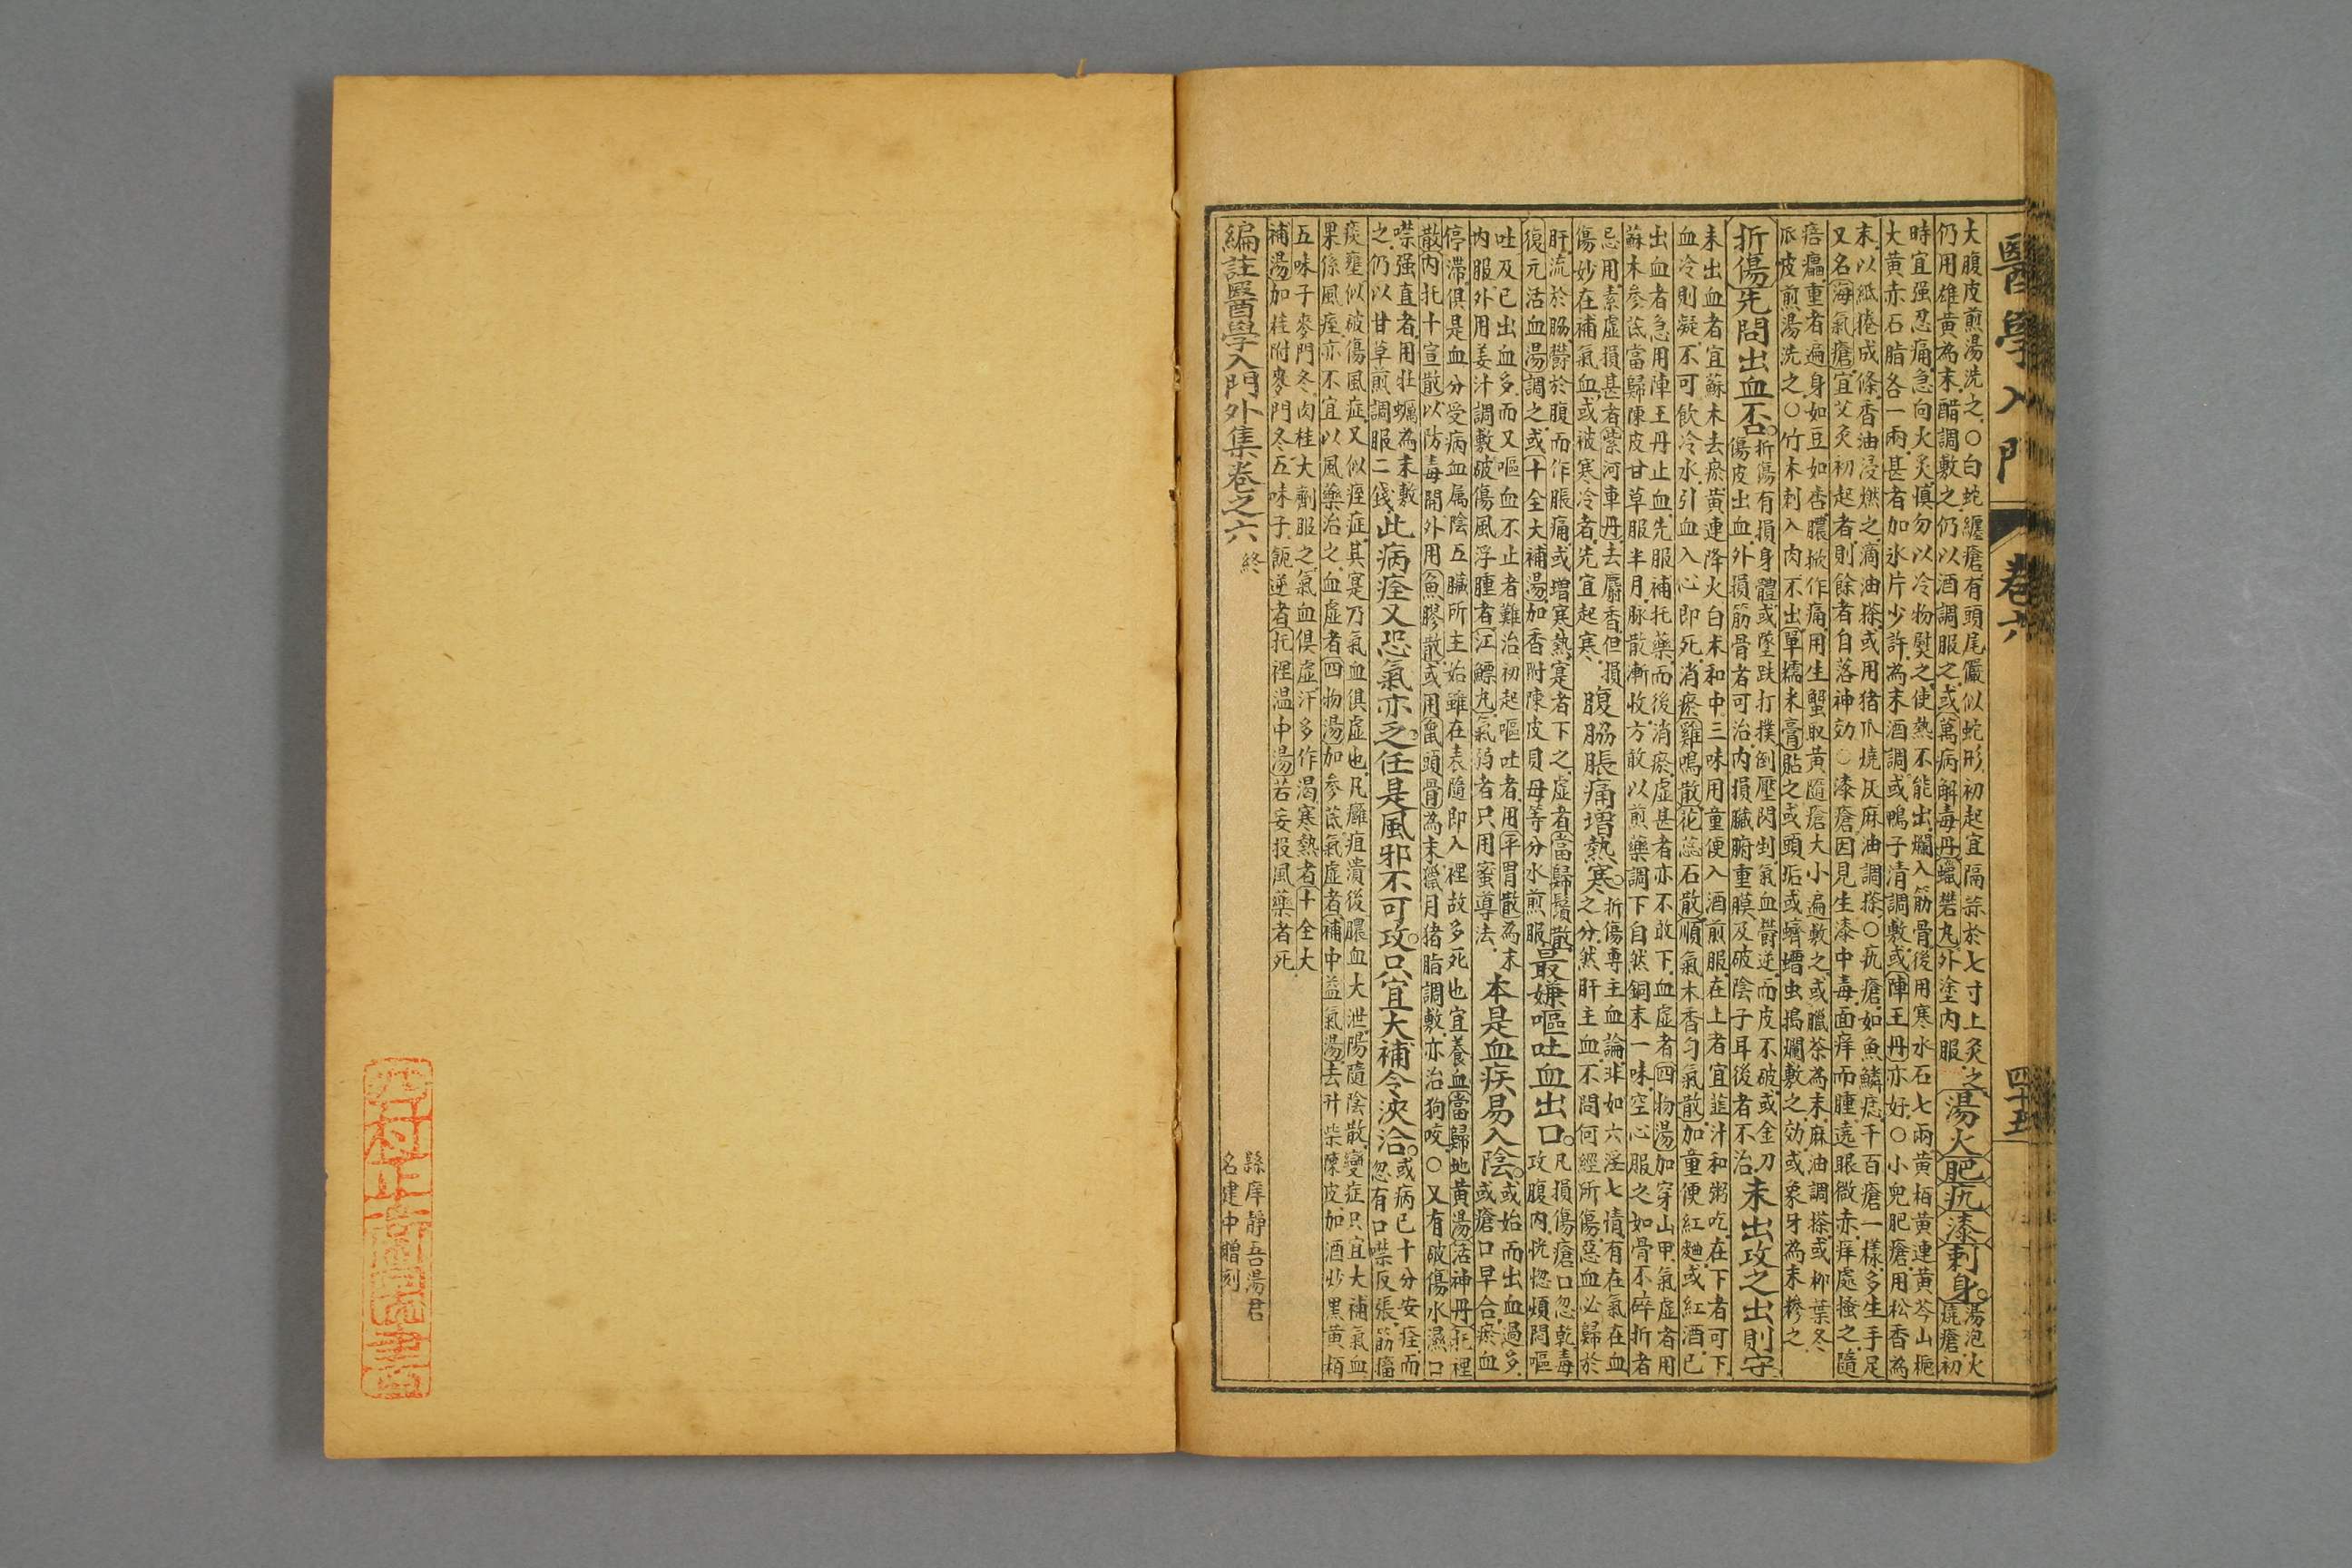 醫學入門 卷六 四十五
大腹皮煎湯洗之○白蛇纏瘡有頭尾儼似蛇形初起宜隔蒜於七寸上灸之
仍用雄黃為末醋調敷之仍以酒調服之或萬病解毒丹蠟礬丸外塗內服
湯火肥瘡漆刺身
湯泡火燒瘡初
時宜强忍痛急向火炙慎勿以冷物熨之使熱不能出爛入筋骨後用寒水石七兩黃栢黃連黃芩山梔
大黃赤石脂各一兩甚者加氷片少許為末酒調或鴨子清調敷或陣王丹亦好○小兒肥瘡用松香為
末以紙捲成條香油浸燃之滴油搽或用猪爪燒灰麻油調搽○疠瘡如魚鱗痣千百瘡一樣多生手足
又名海氣瘡宜艾灸初起者則餘者自落神効○漆瘡因見生漆中毒面痒而腫遶眼微赤痒處搔之隨
瘖㿔重者遍身如豆如杏膿掀作痛用生蟹取黃隨瘡大小遍敷之或臘茶為末麻油調搽或柳葉冬
瓜皮煎湯洗之○竹木刺入肉不出單糯米膏貼之或頭垢或蠐螬虫搗爛敷之効或象牙為末糝之
折傷先問出血否
折傷有損身體或墜跌打撲倒壓閃剉氣血鬱逆而皮不破或金刀
傷皮出血外損筋骨者可治內損臟腑重膜及破陰子耳後者不治
未出攻之出則守
未出血者宜蘇木去瘀黃連降火白朮和中三味用童便入酒煎服在上者宜韮汁和粥吃在下者可下
血冷則凝不可飲冷水引血入心即死消瘀雞鳴散花蕊石散順氣木香勻氣散加童便紅麯或紅酒已
出血者急用陣王丹止血先服補托藥而後消瘀虛甚者亦不敢下血虛者四物湯加穿山甲氣虛者用
蘇木參茋當歸陳皮甘草服半月脉散漸收方敢以煎藥調下自然銅末一味空心服之如骨不碎折者
忌用素虛損甚者紫河車丹去麝香但損
傷妙在補氣血或被寒冷者先宜起寒
腹脇脹痛增熱寒
折傷專主血論非如六淫七情有在氣在血
之分然肝主血不問何經所傷惡血必歸於
肝流於脇鬱於腹而作脹痛或增寒熱寔者下之虛者當歸鬚散
復元活血湯調之或十全大補湯加香附陳皮貝母等分水煎服
最嫌嘔吐血出口
凡損傷瘡口忽乾毒
攻腹內恍惚煩悶嘔
吐及已出血多而又嘔血不止者難治初起嘔吐者用平胃散為末
內服外用姜汁調敷破傷風浮腫者江鰾丸氣弱者只用蜜導法
本是血疾易入陰
或始而出血過多
或瘡口早合瘀血
停滯俱是血分受病血属陰五臟所主始雖在表隨即入裡故多死也宜養血當歸地黃湯活神丹托裡
散內托十宣散以防毒開外用魚膠散或用鼠頭骨為末臘月猪脂調敷亦治狗咬○又有破傷水濕口
噤强直者用牡蠣為末敷
之仍以甘草煎調服二錢
此病痊又恐氣亦乏任是風邪不可攻只宜大補令浹洽
或病已十分安痊而
忽有口噤反張筋搐
痰壅似破傷風症又似痙症其寔乃氣血俱虛也凡癰疽潰後膿血大泄陽隨陰散變症只宜大補氣血
果係風痙亦不宜以風藥治之血虛者四物湯加參茋氣虛者補中益氣湯去升柴陳皮加酒炒黑黃栢
五味子麥門冬肉桂大劑服之氣血俱虛汗多作渴寒熱者十全大
補湯加桂附麥門冬五味子飽逆者托裡温中湯若妄投風藥者死
編註醫學入門外集卷之六 終
縣庠靜吾湯君
名建中贈刻